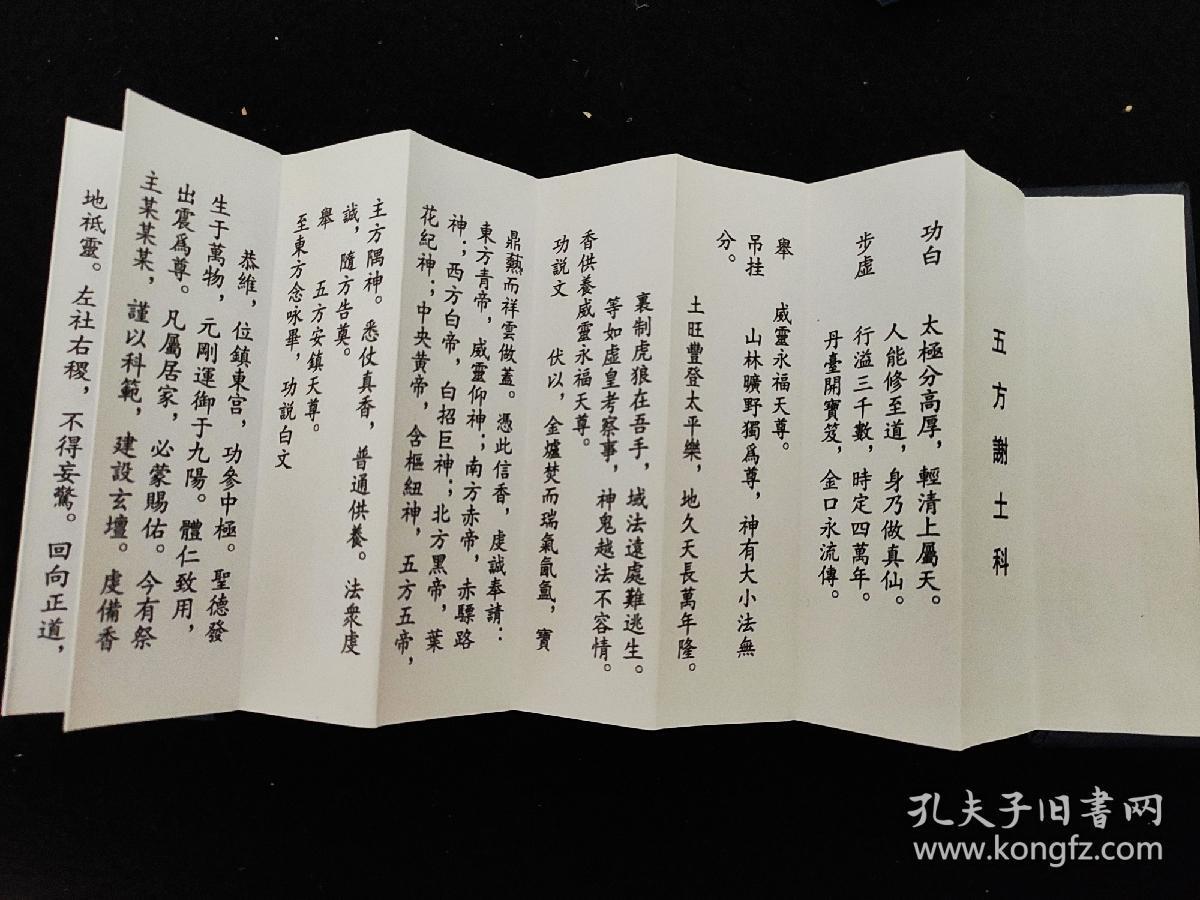 五方謝土科
功白　太極分高厚，輕清上屬天。
人能修至道，身乃做真仙。
步虛　行溢三千數，時定四萬年。
丹臺開寶笈，金口永流傳。
舉　威靈永福天尊。
吊挂　山林曠野獨爲尊，神有大小法無
分。
土旺豐登太平樂，地久天長萬年隆。
裏制虎狼在吾手，域法遠處難逃生。
等如虛皇考察事，神鬼越法不容情。
香供養威靈永福天尊。
功説文　伏以，金爐焚而瑞氣氤氳，寶
鼎爇而祥雲做蓋。憑此信香，虔誠奉請：
東方青帝，威靈仰神；南方赤帝，赤驃路
神；西方白帝，白招巨神；北方黑帝，葉
花紀神；中央黄帝，含樞紐神，五方五帝，
主方隅神。悉仗真香，普通供養。法衆虔
誠，隨方告奠。
舉　五方安鎮天尊。
至東方念咏畢，功説白文
恭維，位鎮東宫，功參中極。聖德發
生于萬物，元剛運御于九陽。體仁致用，
出震爲尊。凡屬居家，必蒙賜佑。今有祭
主某某某，謹以科範，建設玄壇。虔備香
地祇靈。左社右稷，不得妄驚。回向正道，
孔夫子旧书网
www.kongfz.com